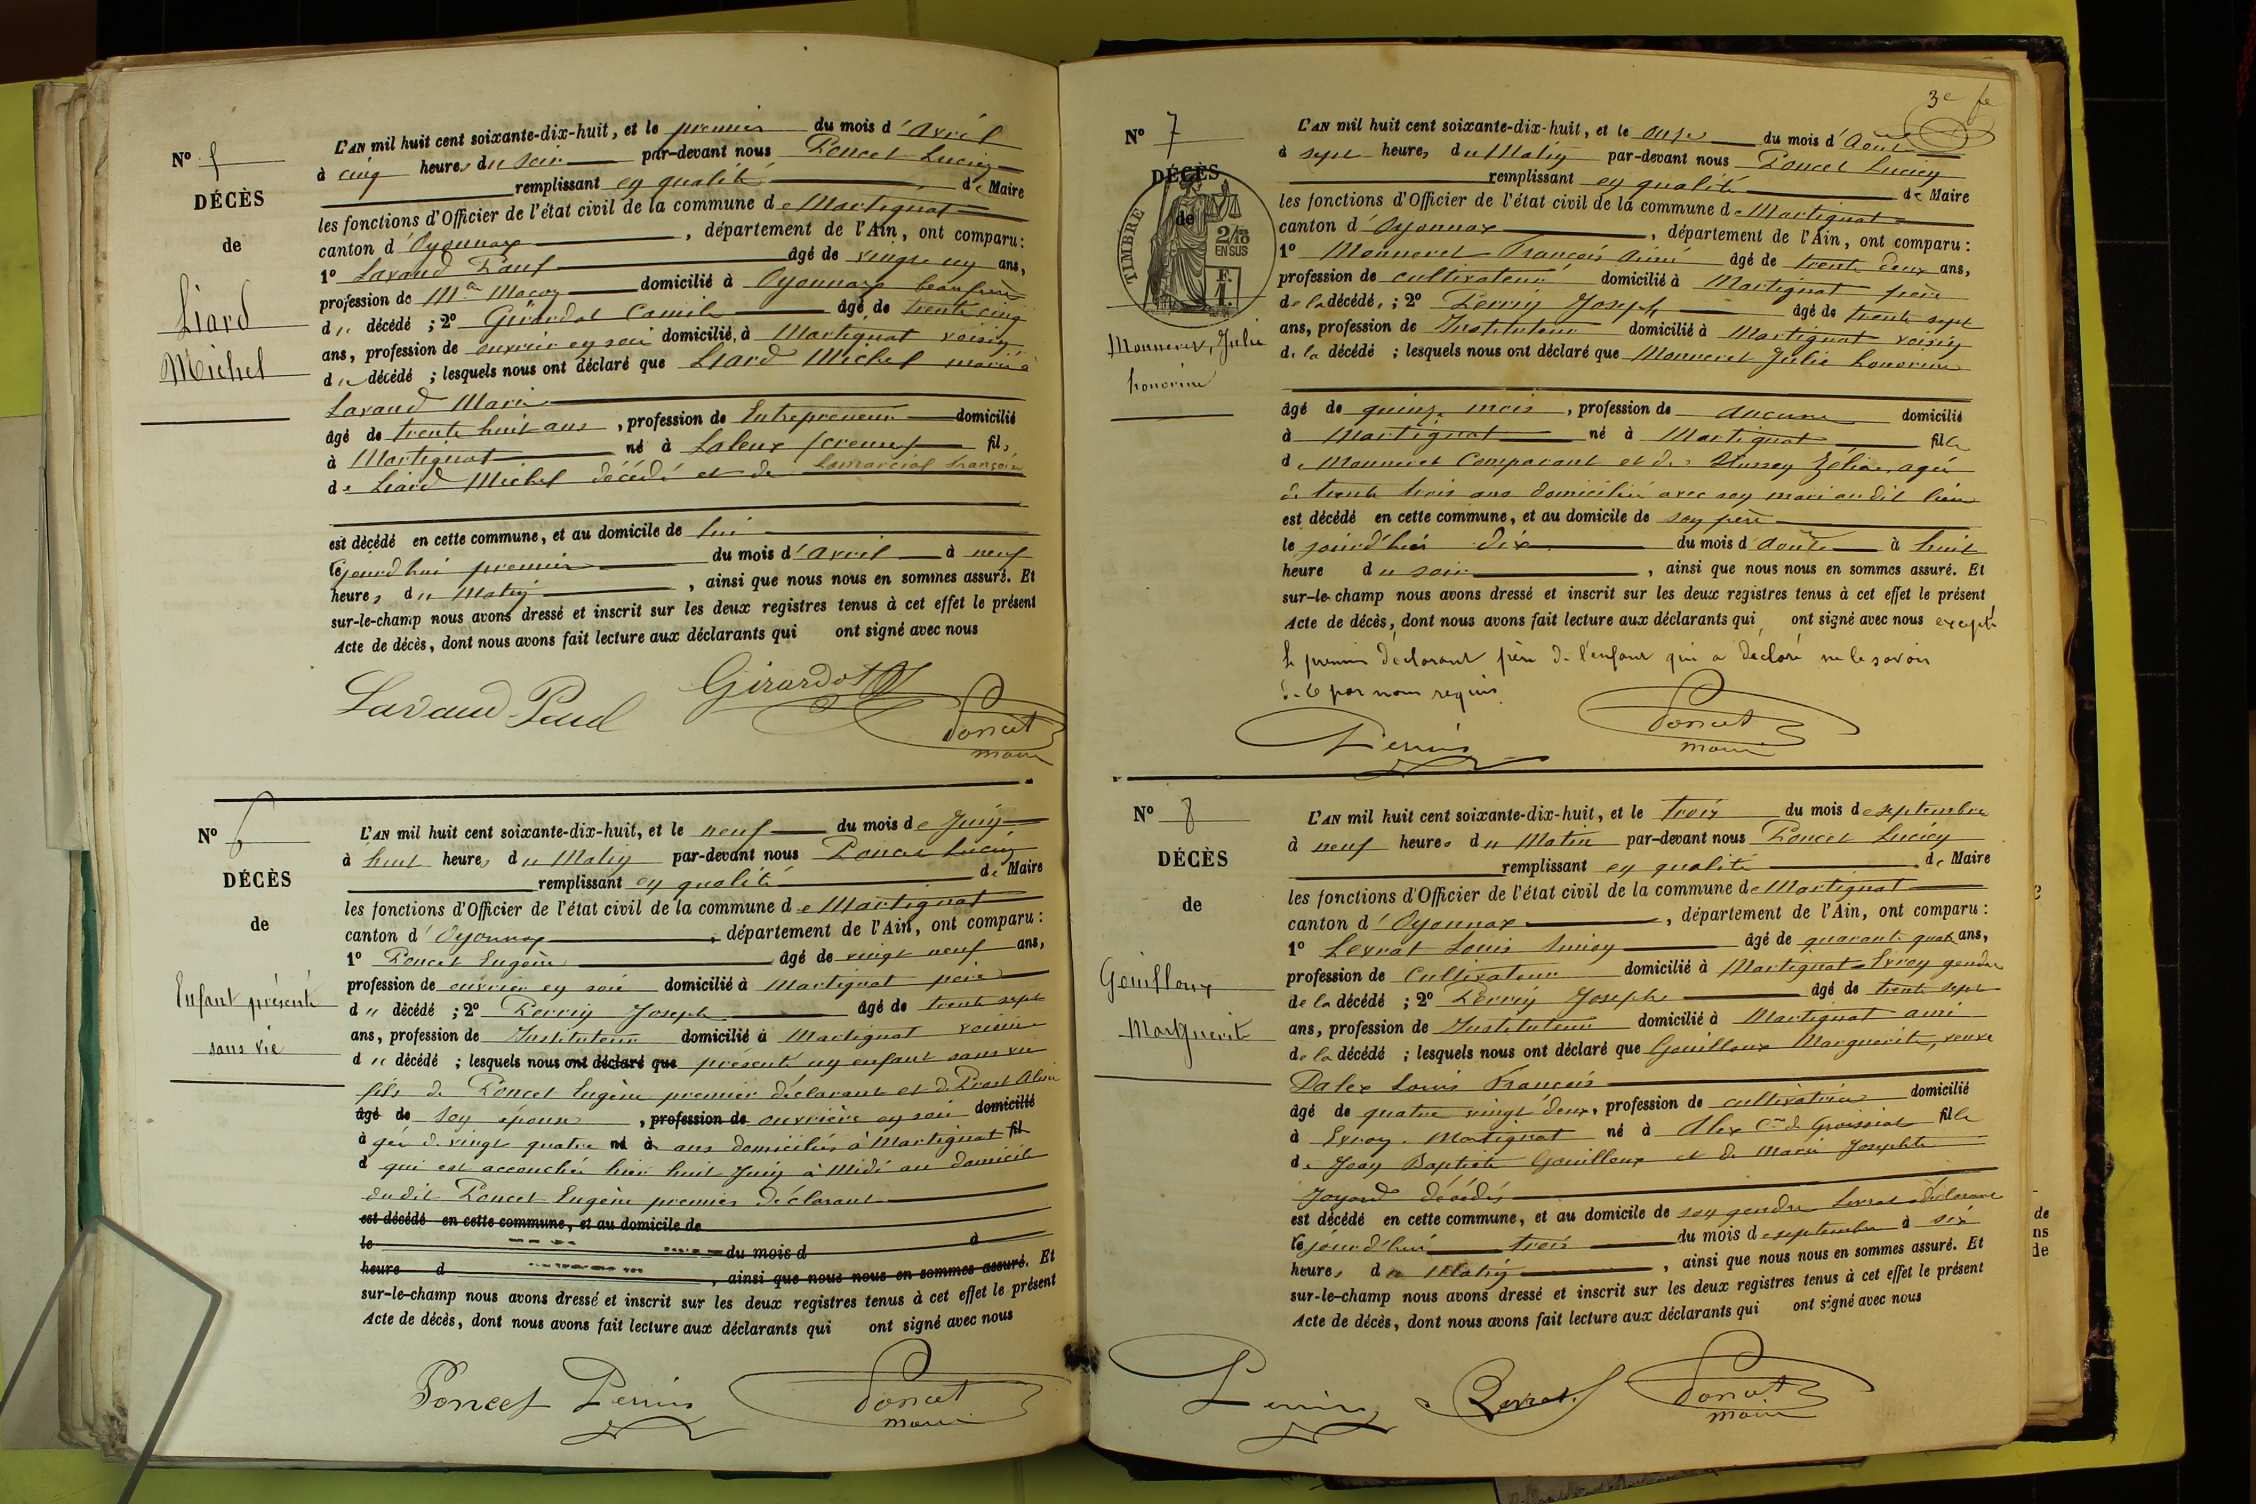 N° 5
DÉCÈS
de
Liard
Michel
L'AN mil huit cent soixante-dix-huit, et le premier du mois d'Avril
à cinq heures du soir par-devant nous Poncet Lucien
remplissant en qualité de Maire
les fonctions d'Officier de l'état civil de la commune de Martignat
canton d'Oyonnax, département de l'Ain, ont comparu:
1° Lavaud Paul âgé de vingt un ans,
profession de Md Maçon domicilié à Oyonnax beau frère
du décédé ; 2° Girardot Camile âgé de trente cinq
ans, profession de ouvrier en soie domicilié à Martignat voisin
du décédé ; lesquels nous ont déclaré que Liard Michel marié à
Lavaud Marie
âgé de trente huit ans, profession de Entrepreneur domicilié
à Martignat né à (creuse) fils
de Liard Michel décédé et de Françoise
est décédé en cette commune, et au domicile de lui
le jourd'hui premier du mois d'avril à neuf
heures du Matin, ainsi que nous nous en sommes assuré. Et
sur-le-champ nous avons dressé et inscrit sur les deux registres tenus à cet effet le présent
Acte de décès, dont nous avons fait lecture aux déclarants qui ont signé avec nous
Lavaud Paul Girardot Poncet
maire
N° 6
DÉCÈS
de
Enfant présenté
sans vie
L'AN mil huit cent soixante-dix-huit, et le neuf du mois de Juin
à huit heures du Matin par-devant nous Poncet Lucien
remplissant en qualité de Maire
les fonctions d'Officier de l'état civil de la commune de Martignat
canton d'Oyonnax, département de l'Ain, ont comparu :
1° Poncet Eugène âgé de vingt neuf ans,
profession de ouvrier en soie domicilié à Martignat père
du décédé ; 2° Perrin Joseph âgé de trente sept
ans, profession de Instituteur domicilié à Martignat voisin
du décédé ; lesquels nous ont déclaré que présenté un enfant sans vie
fils de Poncet Eugène premier déclarant et de Prost
âgé de son épouse, profession de ouvrière en soie domicilié
à gée de vingt quatre né à ans domiciliés à Martignat fil
d qui est accouchée hier huit Juin à Midi au domicile
du dit Poncet Eugène premier déclarant
est décédé en cette commune, et au domicile de
le du mois d à
heure d , ainsi que nous nous en sommes assuré. Et
sur-le-champ nous avons dressé et inscrit sur les deux registres tenus à cet effet le présent
Acte de décès, dont nous avons fait lecture aux déclarants qui ont signé avec nous
Poncet Perrin Poncet
maire
3e fe
N° 7
DÉCÈS
de
TIMBRE
2/10
EN SUS
Monneret, Julie
honorine
L'AN mil huit cent soixante-dix-huit, et le onze du mois d'Août
à sept heures du Matin par-devant nous Poncet Lucien
remplissant en qualité de Maire
les fonctions d'Officier de l'état civil de la commune de Martignat
canton d'Oyonnax, département de l'Ain, ont comparu :
1° Monneret François Aimé âgé de trente deux ans,
profession de cultivateur domicilié à Martignat père
de la décédé, ; 2° Perrin Joseph âgé de trente sept
ans, profession de Instituteur domicilié à Martignat voisin
de la décédé ; lesquels nous ont déclaré que Monneret Julie honorine
âgé de quinze mois, profession de aucune domicilié
à Martignat né à Martignat fille
de Monneret Comparant et de Zélie, agée
de trente trois ans domiciliée avec son mari au dit lieu
est décédé en cette commune, et au domicile de son père
le jour d'hier dix du mois d'août à huit
heure du soir, ainsi que nous nous en sommes assuré. Et
sur-le-champ nous avons dressé et inscrit sur les deux registres tenus à cet effet le présent
Acte de décès, dont nous avons fait lecture aux déclarants qui ont signé avec nous excepté
le premier déclarant père de l'enfant qui a déclaré ne le savoir
de ce par nous requis.
Perrin Poncet
maire
N° 8
DÉCÈS
de
Gouilloux
Marguerite
L'AN mil huit cent soixante-dix-huit, et le trois du mois de septembre
à neuf heures du Matin par-devant nous Poncet Lucien
remplissant en qualité de Maire
les fonctions d'Officier de l'état civil de la commune de Martignat
canton d'Oyonnax, département de l'Ain, ont comparu :
1° Levrat Louis âgé de quarante quatre ans,
profession de Cultivateur domicilié à Martignat Evron gendre
de la décédé ; 2° Perrin Joseph âgé de trente sept
ans, profession de Instituteur domicilié à Martignat ami
de la décédé ; lesquels nous ont déclaré que Gouilloux Marguerite, veuve
Dalex Louis François
âgé de quatre vingt deux, profession de cultivatrice domicilié
à Evron Martignat né à Alex Cne de Groissiat fille
de Jean Baptiste Gouilloux et de Marie Josephte
Joyard décédés
est décédé en cette commune, et au domicile de son gendre Levrat déclarant
le jourd'hui trois du mois de septembre à six
heures du Matin, ainsi que nous nous en sommes assuré. Et
sur-le-champ nous avons dressé et inscrit sur les deux registres tenus à cet effet le présent
Acte de décès, dont nous avons fait lecture aux déclarants qui ont signé avec nous
Perrin Levrat Poncet
maire